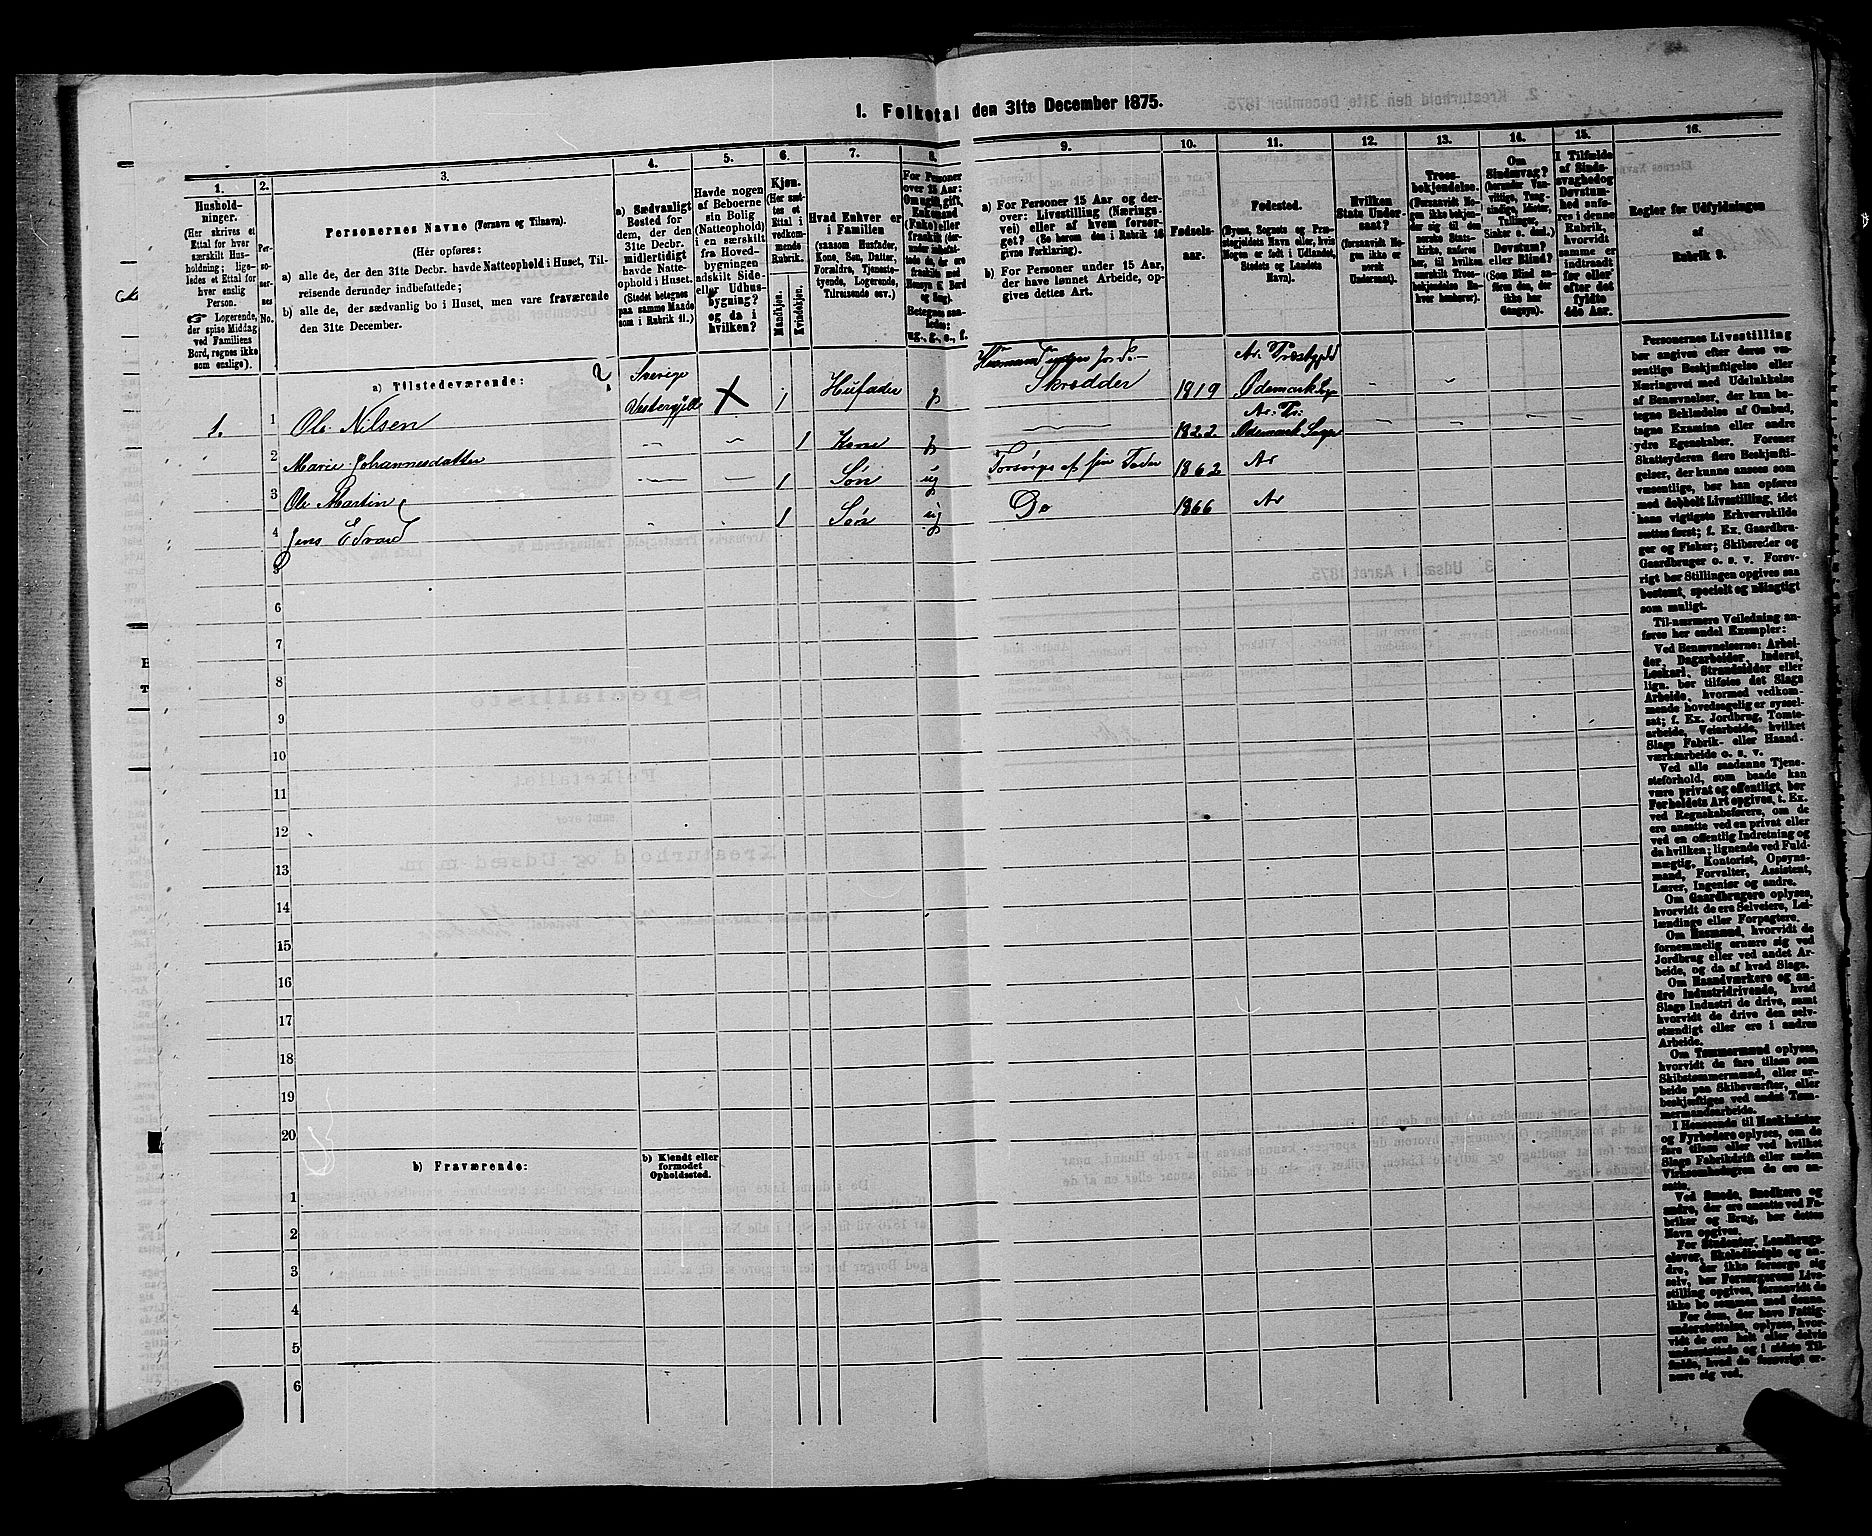 1. Folketal den 31te December 1875.
1.
Hushold-
ninger.
(Her skrives et
Ettal for hver
særskilt Hus-
holdning; lige-
ledes et Ettal for
hver enslig
Person.
Logerende,
der spise Middag
ved Familiens
Bord, regnes ikke
som enslige).
2.
Per-
so-
ner-
nes
No.
3.
Personernes Navne (Fornavn og Tilnavn).
(Her opføres:
a) alle de, der den 31te Decbr. havde Natteophold i Huset, Til-
reisende derunder indbefattede;
b) alle de, der sædvanlig bo i Huset, men vare fraværende
den 31te December.
4.
a) Sædvanligt
Bosted for
dem, der den
31te Decbr.
midlertidigt
havde Natte-
ophold i Huset.
(Stedet betegnes
paa samme Maade
som i Rubrik 11.)
5.
Havde nogen
af Beboerne
sin Bolig
(Natteophold)
i en særskilt
fra Hoved-
bygningen
adskilt Side-
eller Udhus-
bygning?
og da i
hvilken?
6.
Kjøn.
(Her sæt-
tes et
Ettal i
vedkom-
mende
Rubrik.)
Mandkjøn.
Kvindekjøn.
7.
Hvad Enhver er
i Familien
(saasom Husfader,
Kone, Søn, Datter,
Forældre, Tjeneste-
tyende, Logerende,
Tilreisende osv.)
8.
For Personer
over 15 Aar:
Om ugift, gift,
Enkemand
(Enke) eller
fraskilt
Betegnes saa-
ledes:
ug., g., e., f.
9.
a) For Personer 15 Aar og der-
over: Livsstilling (Nærings-
vei) eller af hvem forsør-
get? (Se herom den i Rubrik 16
givne Forklaring).
b) For Personer under 15 Aar,
der have lønnet Arbeide, op-
gives dettes Art.
10.
Fødsels-
aar.
11.
Fødested.
(Byens, Sognets og Præ-
stegjeldets Navn eller, hvis
Nogen er født i Udlandet,
Stedets og Landets
Navn).
12.
Hvilken
Stats Under-
saat?
(forsaavidt No-
gen ikke er
norsk
Undersaat).
13.
Troes-
bekjendelse.
(Forsaavidt No-
gen ikke bekjen-
der sig til den
norske Stats-
kirke, anføres
her, til hvilken
særskilt Troes-
bekjendelse En-
hver henhører).
14.
Om
Sindssvag?
(herunder Van-
vittige, Tung-
sindige, Idioter,
Tullinger,
Sinker o. desl.)
Døvstum?
eller Blind?
(Som Blind an-
føres den, der
ikke har
Gangsyn).
15.
I Tilfælde
af Sinds-
svaghed og
Døvstum-
hed anfø-
res i denne
Rubrik,
hvorvidt
samme er
indtraadt
før eller
efter det
fyldte
4de Aar.
16.
Regler for Udfyldningen
af
Rubrik 9.
a) Tilstedeværende:
Sverige
1. 1 Ole Nilsen X 1 Husfader g Skrædder 1819 Ødemark
2 Marie Johannesdatter 1 Kone g 1822 Ødemark
3 Ole Martin 1 Søn ug Forsørges af sin Fader 1862 Ar
4 Jens Edvard 1 Søn ug Do 1866 Ar
5
6
7
8
9
10
11
12
13
14
15
16
17
18
19
20
b) Fraværende:
b) Kjendt eller
formodet
Opholdssted.
1
2
3
4
5
6
Personernes Livsstilling
bør angives efter deres væ-
sentlige Beskjæftigelse eller
Næringsvei med Udelukkelse
af Benævnelser, der kun be-
tegne Beklædelse af Ombud,
tagne Examina eller andre
ydre Egenskaber. Forener
Skatteyderen flere Beskjæfti-
gelser, der kunne ansees som
væsentlige, bør han opføres
med dobbelt Livsstilling, idet
hans vigtigste Erhvervskilde
sættes først; f. Ex. Gaardbru-
ger og Fisker; Skibsreder og
Gaardbruger o. s. v. Forøv-
rigt bør Stillingen opgives saa
bestemt, specielt og nøiagtigt
som muligt.
Til nærmere Veiledning an-
føres her endel Exempler:
Ved Benævnelserne: Arbei-
der, Dagarbeider, Inderst,
Løskarl, Strandsidder eller
lign. bør tilføies det Slags
Arbeide, hvormed vedkom-
mende hovedsagelig er syssel-
sat; f. Ex. Jordbrug, Tomte-
arbeide, Veiarbeide, hvilket
Slags Fabrik- eller Haand-
værksarbeide o. s. v.
Ved alle saadanne Tjene-
steforhold, som baade kan
være privat og offentligt, bør
Forholdets Art opgives, t. Ex.
ved Regnskabsførere, om de
ere ansatte ved en privat eller
ved en offentlig Indretning og
da hvilken; lignende ved Fuld-
mægtig, Kontorist, Opsyns-
mand, Forvalter, Assistent,
Lærer, Ingeniør og andre.
Om Gaardbrugere oplyses,
hvorvidt de ere Selveiere, Lei-
lændinge eller Forpagtere.
Om Husmænd, hvorvidt de
fornemmelig ernære sig ved
Jordbrug eller ved andet Ar-
beide, og da af hvad Slags.
Om Haandværkere og an-
dre Industridrivende, hvad
Slags Industri de drive, samt
hvorvidt de drive den selv-
stændigt eller ere i andres
Arbeide.
Om Tømmermænd oplyses,
hvorvidt de fare tilsøs som
Skibstømmermænd, eller ar-
beide paa Skibsværfter, eller
beskjæftiges ved andet Tøm-
mermandsarbeide.
I Henseende til Maskinister
og Fyrbødere oplyses, om de
fare tilsøs eller ved hvilket
Slags Fabrikdrift eller anden
Virksomhedsgren de ere an-
satte.
Ved Smede, Snedkere og
andre, der ere ansatte ved Fa-
briker og Brug, bør dettes
Navn opgives.
For Studenter, Landbrugs-
elever, Skoledisciple og an-
dre, der ikke forsørge sig
selv, bør Forsørgerens Livs-
stilling opgives, forsaavidt de
ikke bo sammen med denne.
For dem, der have Fattig-
understøttelse, oplyses, hvor-
vidt de ere helt eller delvis
understøttede og i sidste Til-
fælde, hvad de forøvrigt er-
nære sig ved.